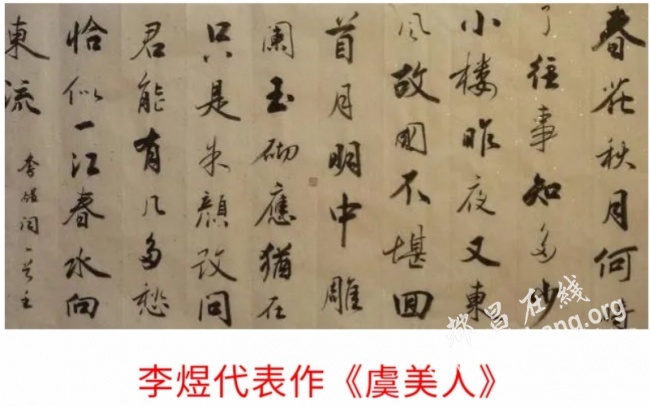 春花秋月何時
了往事知多少
小樓昨夜又東
風故國不堪回
首月明中雕
闌玉砌應猶在
只是朱顏改問
君能有几多愁
恰似一江春水向
東流
李煜词一首
都昌在线
李煜代表作《虞美人》